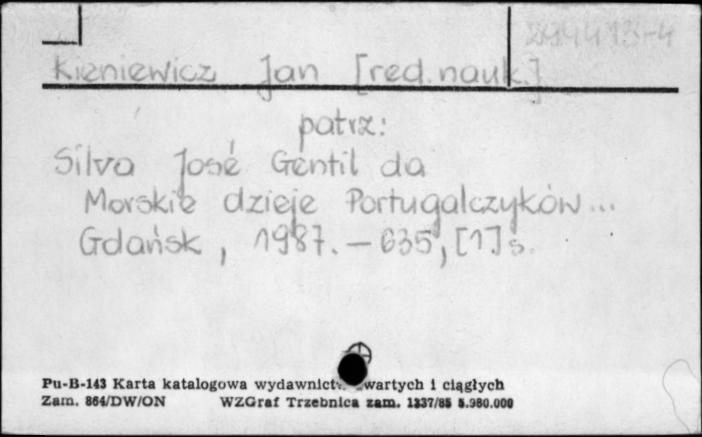 Kieniewicz Jan [red. nauk.]
patrz:
Silva José Gentil da
Morskie dzieje Portugalczyków...
Gdańsk, 1987. – 635, [1] s.
Pu-B-143 Karta katalogowa wydawnictw zwartych i ciągłych
Zam. 864/DW/ON WZGraf Trzebnica zam. 1337/85 5.980.000